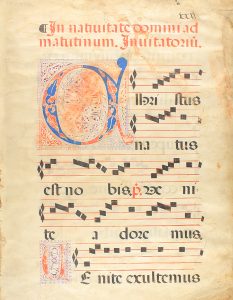 xxij
In nativitate domini ad
matutinum. Invitatoriũ.
Christus
natus
est nobis, ℣. Ve ni
te adoremus
Venite exultemus